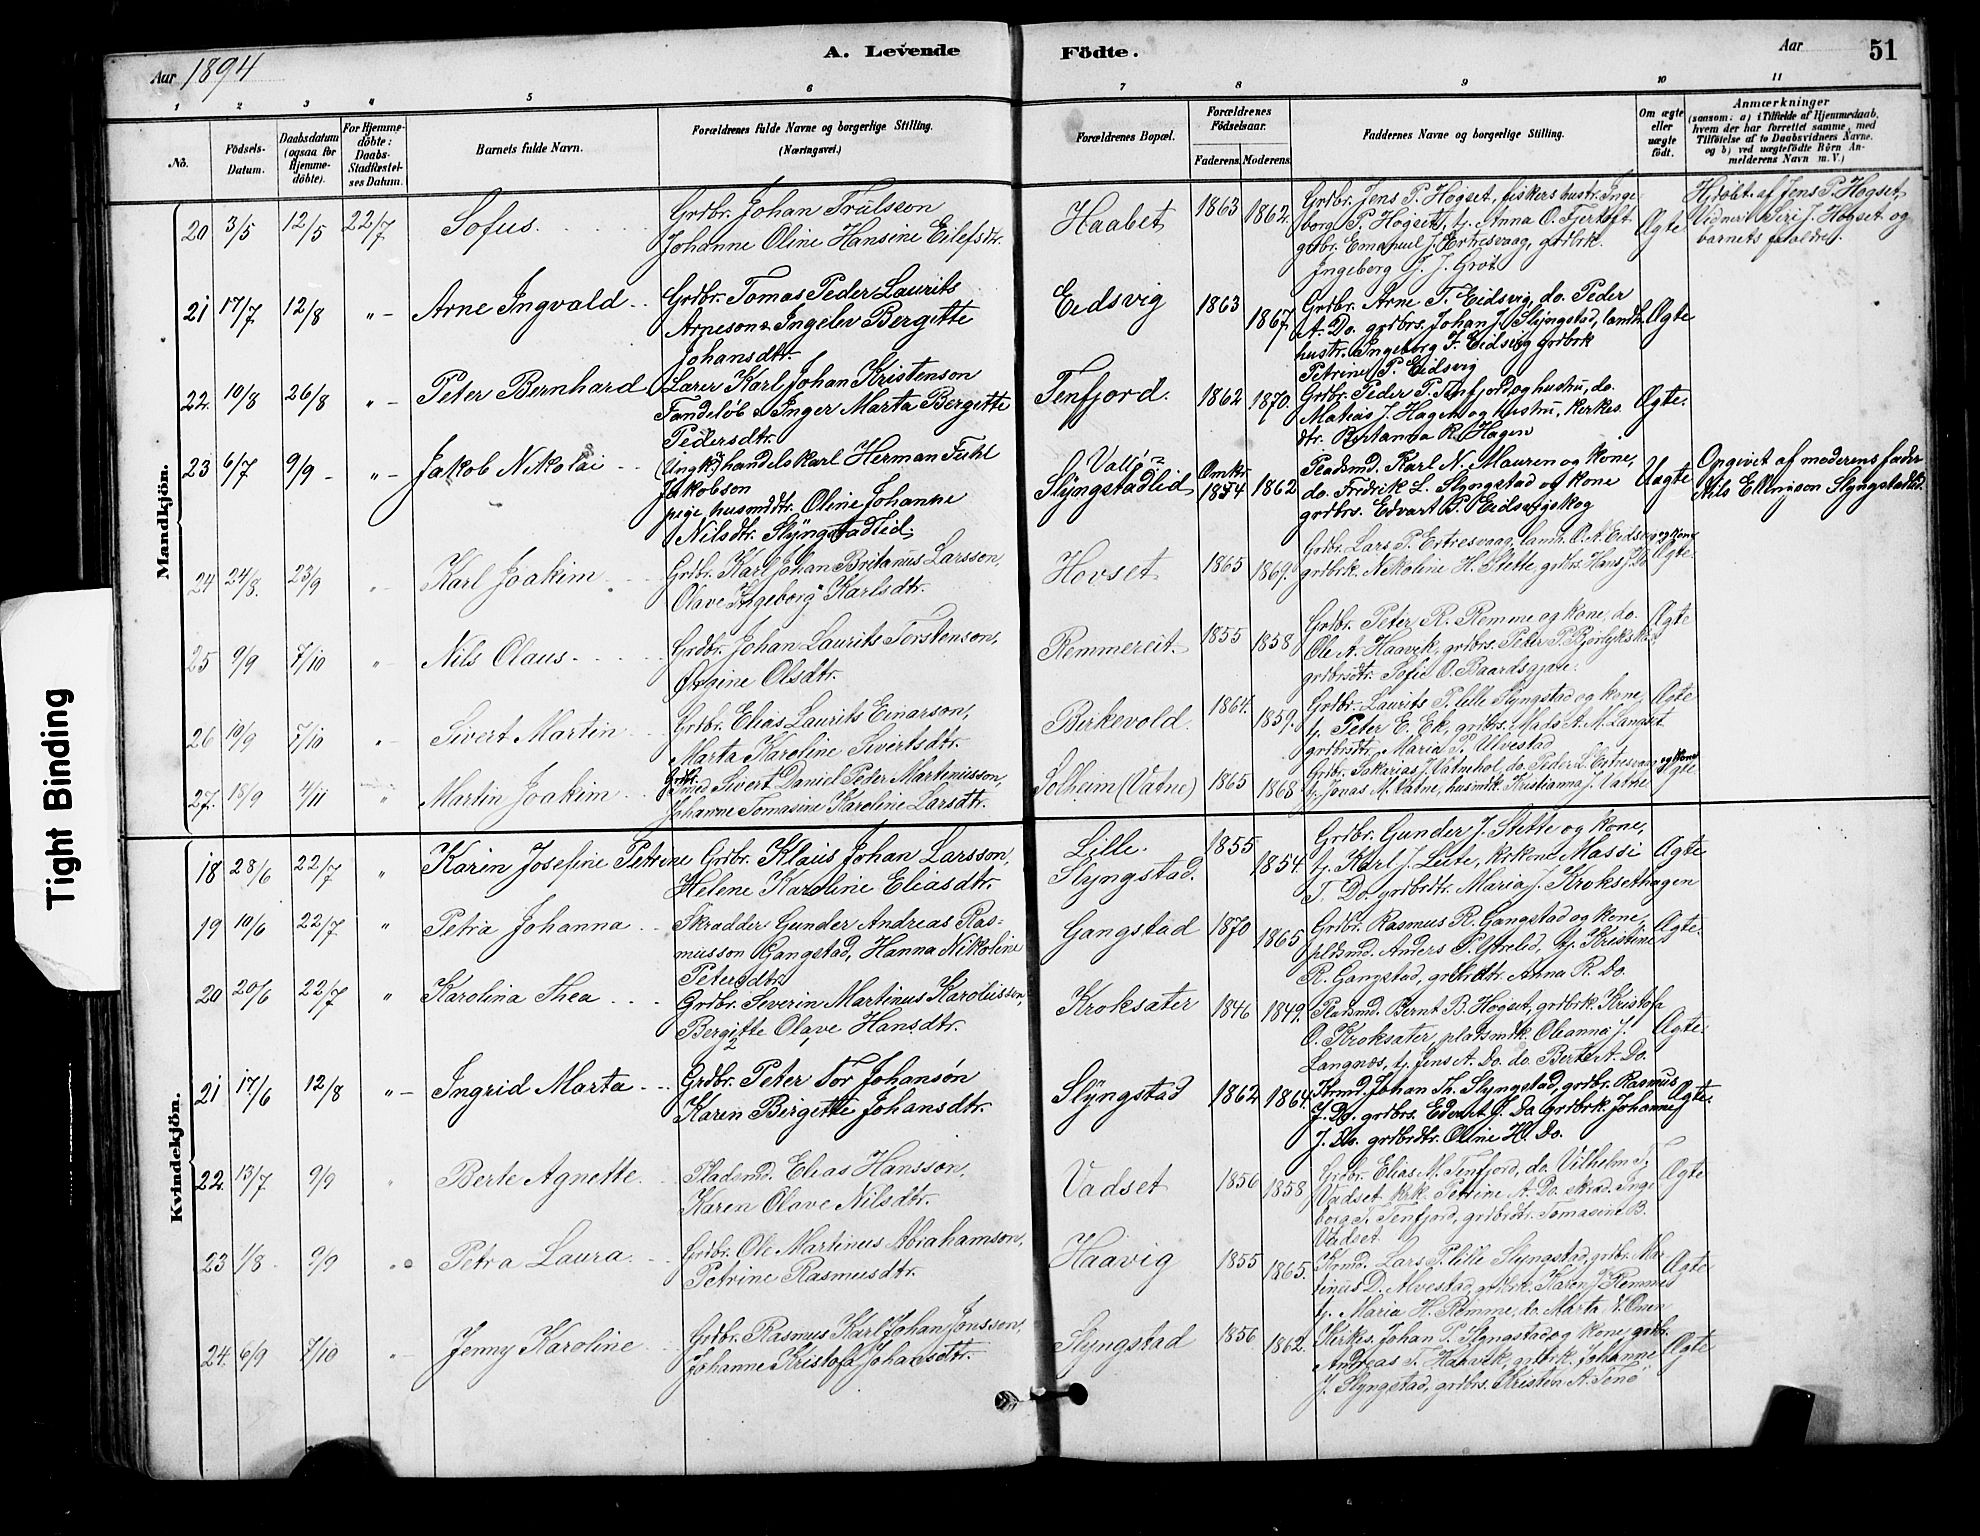 Aar 1894
A. Levende
Födte.
Aar
51
1 2 3 4 5 6 7 8 9 10 11
No.
Födsels-Datum.
Daabsdatum (ogsaa for Hjemme-döbte).
For Hjemme-döbte: Daabs-Stadfæstel-ses Datum.
Barnets fulde Navn.
Forældrenes fulde Navne og borgerlige Stilling.
(Næringsvei.)
Forældrenes Bopæl.
Forældrenes Födselsaar.
Faderens. Moderens.
Faddernes Navne og borgerlige Stilling.
Om ægte eller uægte födt.
Anmærkninger
(saasom: a) i Tilfælde af Hjemmedaab,
hvem der har forrettet samme, med
Tilføielse af to Daabsvidners Navne.
og b) ved uægtefødte Børn An-
melderens Navn m. V.)
Mandkjön.
20 3/5 12/5 22/7 Sofus. Grdbr. Johan Trulsson
Johanne Oline Hansine Eilefsdtr.
Haabet 1863 1862. Grdbr. Jens P. Hogset, fiskers hustr. Inge
borg P. Hogset, tj. Anna O. Fjertoft
gdbr. Emanuel J. Ertresvaag, grdbrk.
Ingeborg J. J. Grot
Ægte
Hjdöbt. af Jens P. Hogset,
Vidner: Siri J. Hogset og
barnets foraldre.
21 17/7 12/8 "- Arne Ingvald Grdbr. Tomas Peder Laurits
Arneson & Ingelev Bergitte
Johansdtr.
Eidsvig 1863 1867. Grdbr. Arne T. Eidsvig, do. Peder
A. Do. grdbrs. Johan J. Slyngstad, landh.
hustr. Ingeborg T. Eidsvig grdbrk
Petrine P. Eidsvig
Ægte
22. 10/8 26/8 "- Peter Bernhard Lærer Karl Johan Kristenson
Tandeløb & Inger Marta Bergitte
Pedersdtr.
Tenfjord. 1862 1870. Grdbr. Peder P. Tenfjord og hustru, do.
Matias J. Hagen og hustru, kirkes.
dtr. Bertanna R. Hagen
Ægte.
23 6/7 9/9 - "- Jakob Nikolai (Ungk.) handelskarl Herman Fuhl
Jakobson
pige, husmdtr. Oline Johanne
Nilsdtr. Slyngstadlid
Slyngstadlid Omkr. 1854 1862 Pladsmd. Karl N. Mauren og kone,
do. Fredrik L. Slyngstad og kone
grdbrs. Edvart P. Eidsvigskog
Uægte
Opgivet af moderens fader
Nils Ellingson Slyngstadlid.
24 24/8. 23/9 "- Karl Joakim Grdbr. Karl Johan Britanus Larsson,
Olave Ingeborg Karlsdtr.
Hovset 1865 1869. Grdbr. Lars P. Ertresvaag, landh. O. A. Eidsvig og kone
grdbrk. Nekoline H. Stette, grdbrs. Hans J. Do.
Ægte.
25 9/9 7/10 " Nils Olaus Grdbr. Johan Laurits Torstenson,
Orgine Olsdtr.
Remmereit. 1855 1858 Grdbr. Peter R. Remme og kone, do.
Ole A. Haavik, grdbrs. Peter P. Bjorlykskot
grdbrsdtr. Sofie O. Baardsgjore.
Ægte
26 10/9 7/10 " Sivert Martin Grdbr. Elias Laurits Einarson,
Marta Karoline Sivertsdtr.
Birkevold. 1864. 1859. Grdbr. Laurits P. lille Slyngstad og kone,
tj. Peter E. Ek, grdbrs. Mads A. M. Langset
grdbrsdtr. Maria P. Ulvestad
Ægte
27. 18/9 4/11 " Martin Joakim Grdbr. Sivert Daniel Peter Martinusson,
Johanne Tomasine Karoline Larsdtr.
Solheim (Vatne) 1865 1868 Grdbr. Sakarias J. Vatnehol, do. Peder L. Ertresvaag og kone
tj. Jonas M. Vatne, husmdk. Kristianna J. Vatne
Ægte
Kvindekjön.
18 28/6 22/7 " Karin Josefine Petrine Grdbr. Klaus Johan Larsson,
Helene Karoline Eliasdtr.
Lille.
Slyngstad. 1855 1854. Grdbr. Gunder J. Stette og kone,
tj. Karl J. Leite, krkone Massi
T. Do. grdbrdtr. Maria J. Kroksethagen
Ægte
19 10/6 22/7 " Petra Johanna Skradder Gunder Andreas Ras=
musson Gangstad, Hanna Nikoline
Petersdtr.
Gangstad 1870 1865 Grdbr. Rasmus R. Gangstad og kone,
pldsmd. Anders P. Ytrelid, tj. Kristine
R. Gangstad, grdbrdtr. Anna R. Do.
Ægte
20 20/6 22/7 " Karolina Thea Grdbr. Severin Martinus Karolusson,
Bergitte Olave Hansdtr.
Kroksater 1846 1849. Pladsmd. Bernt B. Hogset, grdbrk. Kristofa
O. Kroksater, pladsmdk. Oleanna J.
Langnæs, tj. Jens A. Do. do. Berte A. Do.
Ægte.
21 17/6 12/8 "- Ingrid Marta Grdbr. Peter Tor Johanson
Karen Bergitte Johansdtr.
Slyngstad 1862 1864. Strmd. Johan Th. Slyngstad, grdbr. Rasmus
J. Do. grdbrs. Edvart J. Do. grdbrk. Johanne
J. Do. grdbrdtr. Oline H. Do.
Ægte.
22. 13/7 9/9 " Berte Agnette Pladsmd. Elias Hansson,
Karen Olave Nilsdtr.
Vadset 1856 1858 Grdbr. Elias M. Tenfjord, do. Vilhelm T.
Vadset krk. Petrine A. Do. skrad. Inge
borg T. Tenfjord, grdbrdtr. Tomasine B.
Vadset
Ægte
23 1/8 9/9 "- Petra Laura Grdbr. Ole Martinus Abrahamson,
Petrine Rasmusdtr.
Haavig 1855 1865. Krmd. Lars P. lille Slyngstad, grdbr. Mar
tinus D. Alvestad, grdbrk. Karen J. Remme
tj. Maria H. Remme, do. Marta N. Onen
Ægte
24. 6/9 7/10 " Jenny Karoline Grdbr. Rasmus Karl Johan Jonsson,
Johanne Kristofa Johansdtr.
Slyngstad 1856 1862. Kirkes. Johan P. Slyngstad og kone, grdbr.
Andreas T. Haavik, grdbrk. Johanne
J. Slyngstad, grdbrs. Kristen A. Tenö
Ægte
Tight Binding